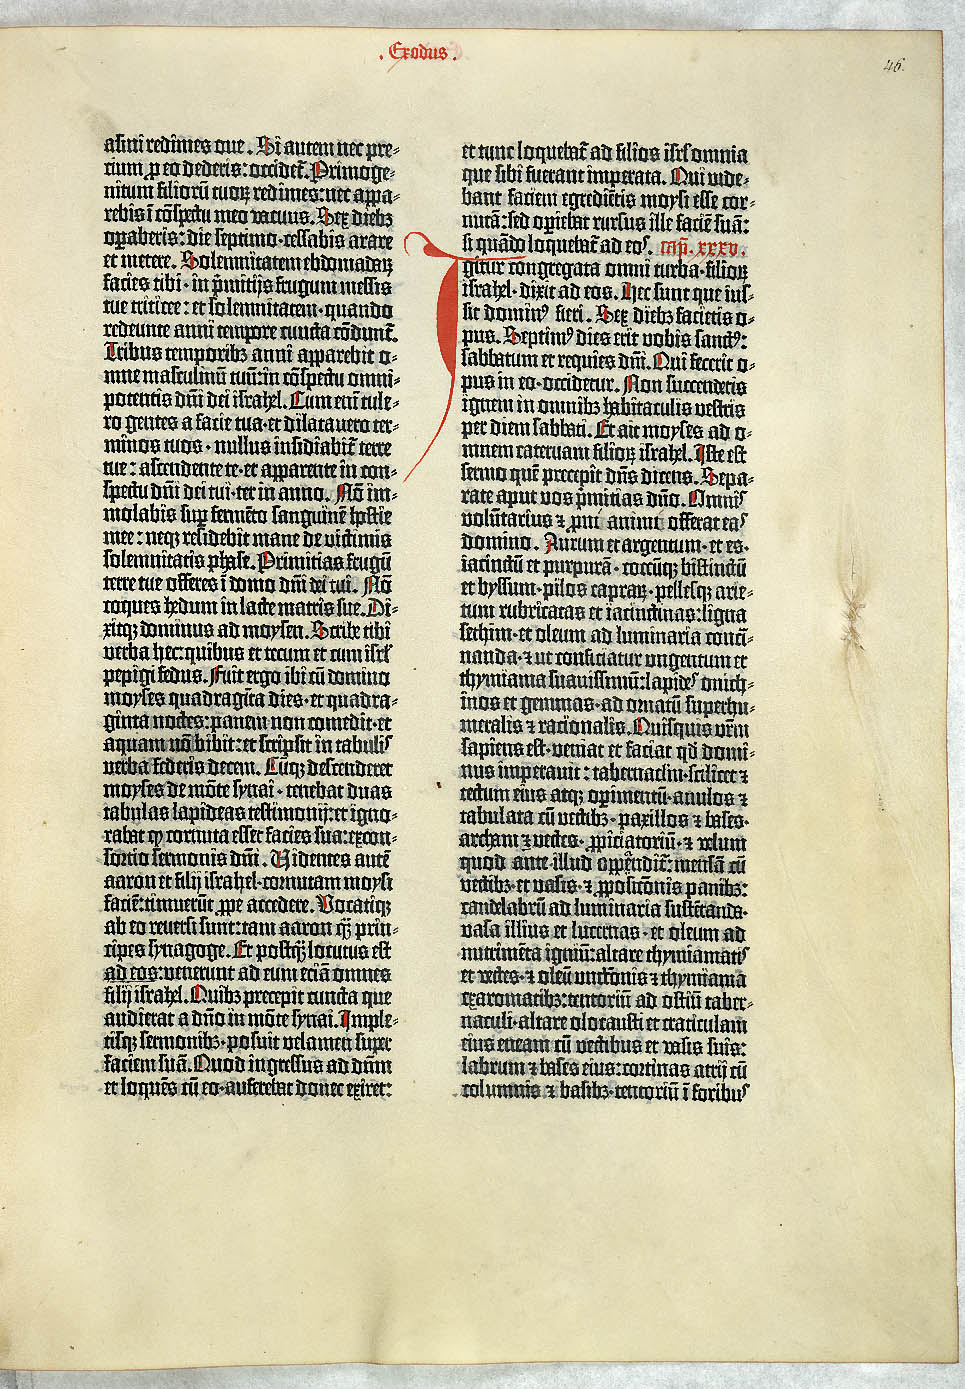 . Exodus .
46.
asini redimes oue. Si autem nec pre-
cium ꝓ eo dederis: occidet̄. Primoge-
nitum filiorū tuoꝝ redimes: nec appa-
rebis ī cōspectu meo vacuus. Sex diebꝫ
oꝑaberis: die septimo cessabis arare
et metere. Solemnitatem ebdomadaꝝ
facies tibi · in p̄mitijs frugum messis
tue triticee: et solemnitatem · quando
redeunte anni tempore cuncta cōdunt̄.
Tribus temporibꝫ anni apparebit o-
mne masculinū tuū: in cōspectu omni-
potentis dn̄i dei israhel. Cum em̄ tule-
ro gentes a facie tua · et dilatavero ter-
minos tuos · nullus insidiabit̄ terre
tue: ascendente te · et apparente in con-
spectu dn̄i dei tui · ter in anno. Nō im-
molabis suꝑ fermēto sanguinē hostie
mee: neqꝫ residebit mane de victimis
solemnitatis phase. Primitias frugū
terre tue offeres ī domo dn̄i dei tui. Nō
coques hedum in lacte matris sue. Di-
xitqꝫ dominus ad moysen. Scribe tibi
verba hec: quibus et tecum et cum isrl̄
pepigi fedus. Fuit ergo ibi cū domino
moyses quadragīta dies · et quadra-
ginta noctes: panem non comedit · et
aquam nō bibit: et scripsit in tabulis
verba federis decem. Cūqꝫ descenderet
moyses de mōte synai · tenebat duas
tabulas lapideas testimonij: et igno-
rabat ꝙ cornuta esset facies sua: ex con-
sortio sermonis dn̄i. Videntes autē
aaron et filij israhel · cornutam moysi
faciē: timuerūt ꝓpe accedere. Vocatiqꝫ
ab eo reversi sunt: tam aaron qᷓꝫ prin-
cipes synagoge. Et postqᷓꝫ locutus est
ad eos: venerunt ad eum eciā omnes
filij israhel. Quibꝫ precepit cuncta que
audierat a dn̄o in mōte synai. Imple-
tisqꝫ sermonibꝫ · posuit velamen super
faciem suā. Quod ingressus ad dn̄m
et loquēs cū eo · auferebat donec exiret:
et tunc loquebat̄ ad filios isrl̄ omnia
que sibi fuerant imperata. Qui vide-
bant faciem egrediētis moysi esse cor-
nutā: sed oꝑiebat rursus ille faciē suā:
si quādo loquebat̄ ad eos. Cap̄. xxxv.
Igitur congregata omni turba filioꝝ
israhel · dixit ad eos. Hec sunt que ius-
sit dominꝰ fieri. Sex diebꝫ facietis o-
pus. Septimꝰ dies erit vobis sanctꝰ:
sabbatum et requies dn̄i. Qui fecerit o-
pus in eo · occidetur. Non succendetis
ignem in omnibꝫ habitaculis vestris
per diem sabbati. Et ait moyses ad o-
mnem catervam filioꝝ israhel. Iste est
sermo quē precepit dn̄s dicens. Sepa-
rate aput vos p̄mitias dn̄o. Omnis
volūtarius ⁊ ꝓni animi offerat eas
domino. Aurum et argentum · et es ·
iacinctū et purpurā · coccūqꝫ bistinctū
et byssum · pilos capraꝝ · pellesqꝫ arie-
tum rubricatas et iacinctinas: ligna
sethim · et oleum ad luminaria conci-
nanda · ⁊ ut conficiatur ungentum et
thymiama suavissimū: lapides onich-
inos et gemmas · ad ornatū superhu-
meralis ⁊ racionalis. Quisquis vr̄m
sapiens est · veniat et faciat qd̄ domi-
nus imperavit: tabernaclm̄ · scilicet ⁊
tectum eius atqꝫ oꝑimentū · anulos ⁊
tabulata cū vectibꝫ · paxillos ⁊ bases ·
archam ⁊ vectes · ꝓpiciatoriū · ⁊ velum
quod ante illud oppēndit̄: mensā cū
vectibꝫ · et vasis · ⁊ ꝓpositōnis panibꝫ:
candelabrū ad luminaria sustētanda ·
vasa illius et lucernas · et oleum ad
nutrimēta igniū: altare thymiamatis
et vectes · ⁊ oleū unctōnis ⁊ thymiama
ex aromatibꝫ: tentoriū ad ostiū taber-
naculi · altare olocausti et craticulam
eius eneam cū vectibus et vasis suis:
labrum ⁊ bases eius: cortinas atrij cū
columnis ⁊ basibꝫ · tentoriū ī foribus